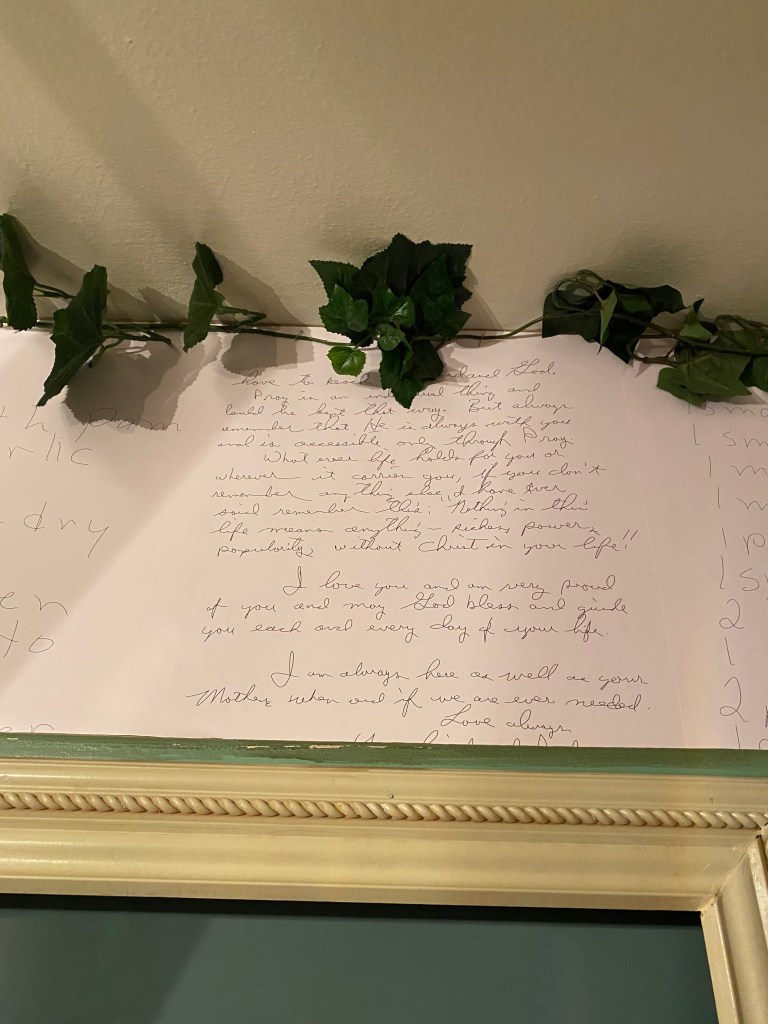 have to reach and God.
Pray is an individual thing and
should be kept that way. But always
remember that He is always with you
and is accessible only through Pray.
What ever life holds for you or
wherever it carries you, if you don't
remember anything else I have ever
said remember this: Nothing in this
life means anything - riches, power,
popularity without Christ in your life!!
I love you and am very proud
of you and may God bless and guide
you each and every day of your life.
I am always here as well as your
Mother, when and if we are ever needed.
Love always,
rlic
dry
en
to
1 sm
1 m
1 m
1 p
1 sm
2
1
2